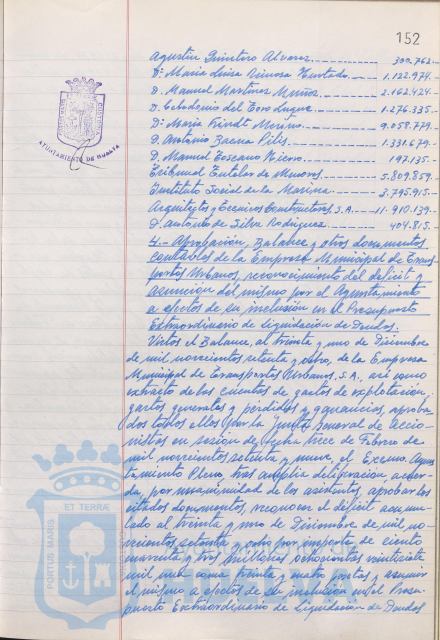 152
Agustín Quintero Alvarez 300.762.-
Dª María Luisa Vinosa Hurtado 1.122.974.-
D. Manuel Martínez Muñoz 2.162.424.-
D. Celedonio del Toro Luque 1.276.335-
Dª María Findt Merino 9.058.779-
D. Antonio Baena Pilis 1.331.679-
D. Manuel Toscano Nieves 197.135.-
Tribunal Tutelar de Menores 5.809.859.-
Instituto Social de la Marina 3.795.915.-
Arquitectos y Tecnicos Constructores, S.A. 11.910.139.-
D. Antonio de Silva Rodriguez 404.815.-
4.- Aprobación, Balance y otros documentos
contables de la Empresa Municipal de Trans
portes Urbanos, reconocimiento del déficit y
asunción del mismo por el Ayuntamiento
a efectos de su inclusión en el Presupuesto
Extraordinario de Liquidación de Deudas.
Vistos el Balance, al treinta y uno de Diciembre
de mil novecientos setenta y ocho, de la Empresa
Municipal de Transportes Urbanos, S.A., así como
extracto de las cuentas de gastos de explotación,
gastos generales y pérdidas y ganancias, aproba
dos todos ellos por la Junta General de Accio-
nistas en sesión de fecha trece de Febrero de
mil novecientos setenta y nueve, el Excmo. Ayun
tamiento Pleno, tras amplia deliberación, acuer-
da, por unanimidad de los asistentes, aprobar los
citados documentos, reconocer el déficit acumu-
lado al treinta y uno de Diciembre de mil no-
vecientos setenta y ocho por importe de ciento
cuarenta y tres millones ochocientas veintisiete
mil una coma treinta y cuatro pesetas y asumir
el mismo a efectos de su inclusión en el Presu-
puesto Extraordinario de Liquidación de Deudas
AYUNTAMIENTO DE HUELVA
PORTUS MARIS
ET TERRÆ